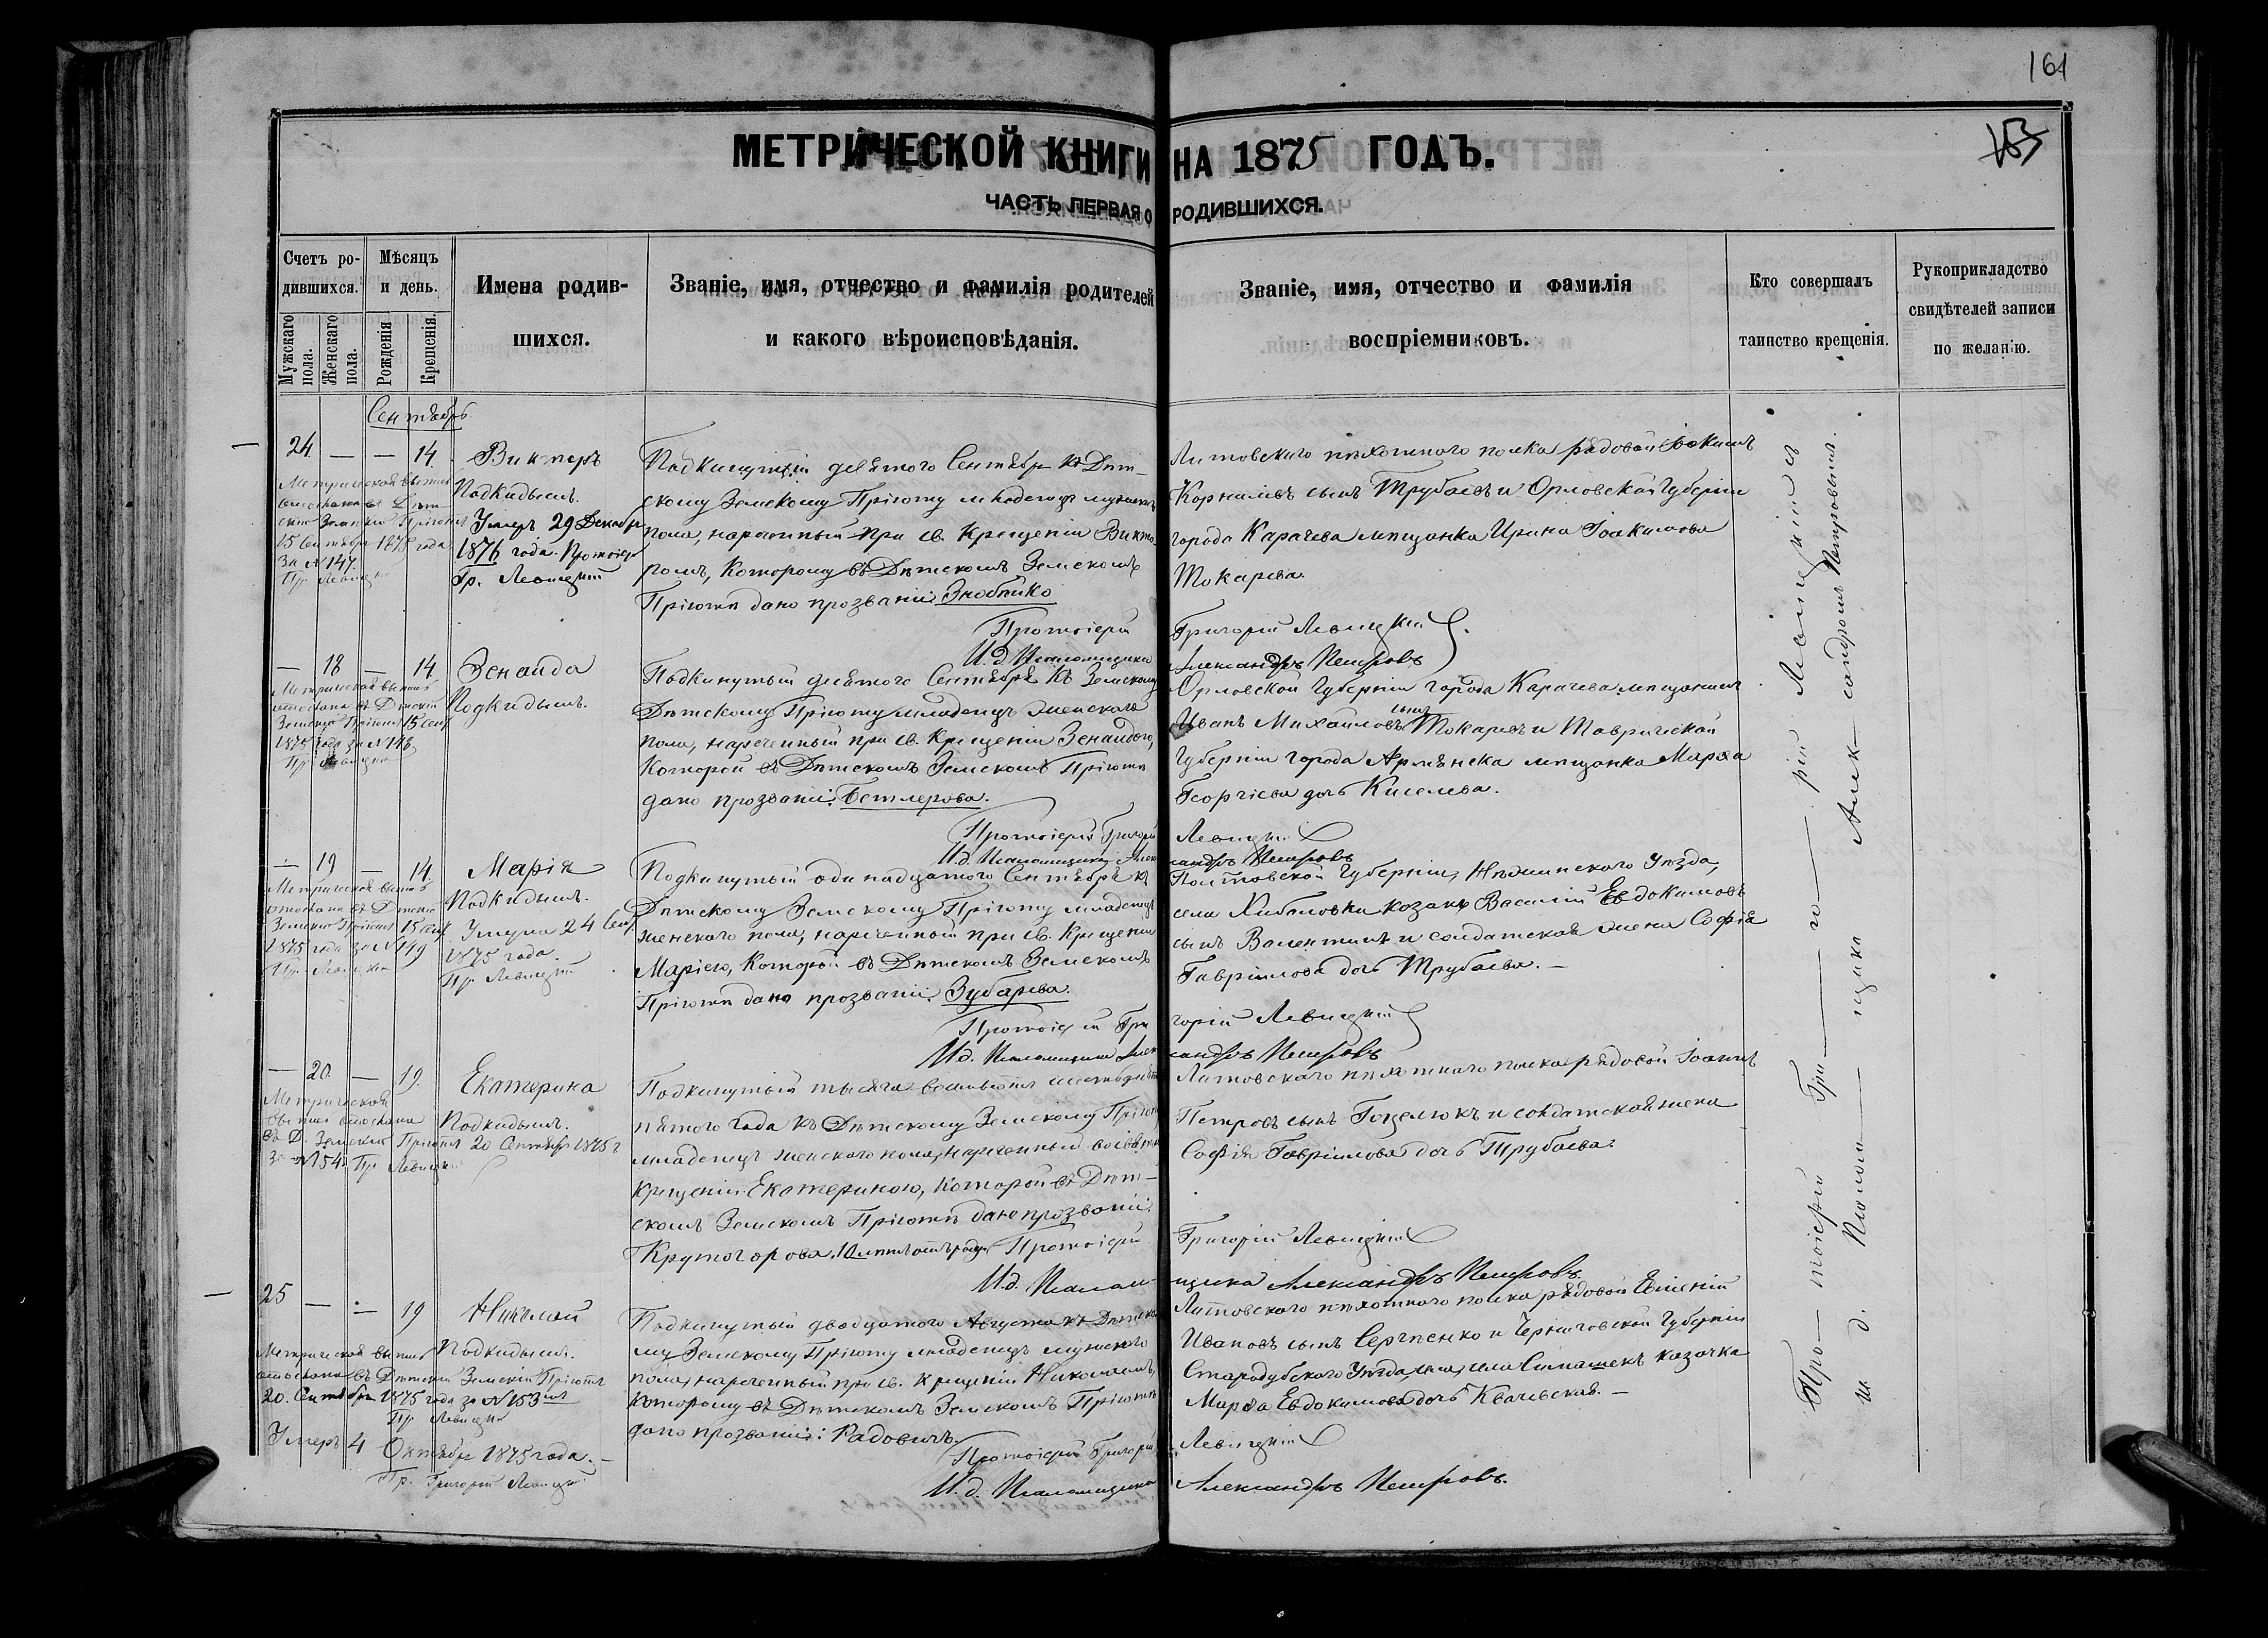 161
153
МЕТРИЧЕСКОЙ КНИГИ НА 1875 ГОДЪ.
ЧАСТЬ ПЕРВАЯ О РОДИВШИХСЯ.
Счетъ родившихся.
Мужскаго пола.
Женскаго пола.
Мѣсяцъ и день.
Рожденія
Крещенія.
Имена родившихся.
Званіе, имя, отчество и фамилія родителей
и какого вѣроисповѣданія.
Званіе, имя, отчество и фамилія
воспріемниковъ.
Кто совершалъ
таинство крещенія.
Рукоприкладство
свидѣтелей записи
по желанію.
Сентябрь
24 — — 14
Викторъ
Подкидышъ.
Умеръ 29 Декабря
1876 года. Протоіер
Гр. Левицкій
15 Сентября 1875 года
За №147.
Пр. Левицкій
Подкинутый девятого Сентября къ Дѣт-
скому Земскому Пріюту младенецъ мужеска
пола, нареченный при св. Крещеніи Викто-
ромъ, Которому въ Дѣтскомъ Земскомъ
Пріютѣ дано прозваніе Знобтико
Протоіерей Григорій Левицкій
И.д. Псаломщика Александръ Петровъ
Литовскаго пѣхотнаго полка рядовой Іоакимъ
Корниловъ сынъ Трубаевъ и Орловской Губерніи
города Карачева мѣщанка Ирина Іоакимова
Токарева.
— 18 — 14
Зенаида
Подкидышъ.
Метрическая выпись
отослана въ Дѣтскій
Земскій Пріютъ 15 Сент
1875 года за №148
Пр. Левицкій
Подкинутый девятого Сентября къ Земскому
Дѣтскому Пріюту младенецъ женскаго
пола, нареченный при св. Крещеніи Зенаидою,
Которой въ Дѣтскомъ Земскомъ Пріютѣ
дано прозваніе: Бетлерова.
Протоіерей Григорій Левицкій
И.д. Псаломщика Александръ Петровъ
Орловской Губерніи города Карачева мѣщанинъ
Иванъ Михайловъ сынъ Токаревъ и Таврической
Губерніи города Армянска мѣщанка Марѳа
Георгіева дочь Киселева.
— 19 — 14
Марія
Подкидышъ.
Умерла 24 Сент
1875 года.
Пр. Левицкій
Метрическая выпись
отослана въ Дѣтскій
Земскій Пріютъ 15 Сент
1875 года за №149
Пр. Левицкій
Подкинутый одинадцатого Сентября къ
Дѣтскому Земскому Пріюту младенецъ
женскаго пола, нареченный при св. Крещеніи
Маріею, Которой въ Дѣтскомъ Земскомъ
Пріютѣ дано прозваніе. Зубарева.
Протоіерей Григорій Левицкій
И.д. Псаломщика Александръ Петровъ
Полтовской Губерніи, Нѣжинскаго Уѣзда,
села козакъ Василій Евдокимовъ
сынъ Валентинъ и солдатская жена Софія
Гавріилова дочь Трубаева. —
— 20 — 19
Екатерина
Подкидышъ.
Метрическая
выпись отослана
въ Д. Земскій Пріютъ 20 Сентября 1875 г
За №154. Пр. Левицкій
Подкинутый тысяча восьмьсотъ шестьдесятъ
пятого года къ Дѣтскому Земскому Пріюту
младенецъ женскаго пола, нареченный во св.
Крещеніи Екатериною, Которой въ Дѣт-
скомъ Земскомъ Пріютѣ дано прозваніе:
Крутогорова. 10 лѣтъ отъ роду. Протоіерей Григорій Левицкій
И.д. Псаломщика Александръ Петровъ.
Литовскаго пѣхотнаго полка рядовой Іоаннъ
Петровъ сынъ Гоцелюкъ и солдатская жена
Софія Гавріилова дочь Трубаева.
25 — — 19
Николай
Подкидышъ.
Метрическая выпись
отослана въ Дѣтскій Земскій Пріютъ
20. Сентября 1875 года за №153
Пр. Левицкій
Умеръ 4 Октября 1875 года. —
Пр. Григорій Левицкій
Подкинутый двадцатого Августа къ Дѣтско-
му Земскому Пріюту младенецъ мужескаго
пола, нареченный при св. Крещеніи Николаемъ,
Которому въ Дѣтскомъ Земскомъ Пріютѣ
дано прозваніе: Радовичъ.
Протоіерей Григорій Левицкій
И.д. Псаломщика Александръ Петровъ.
Литовскаго пѣхотнаго полка рядовой Евгеній
Ивановъ сынъ Сергѣенко и Черниговской Губерніи
Стародубскаго Уѣзда, села казачка
Марѳа Евдокимова дочь Квачевская. —
Протоіерей Григорій Левицкій
И. д. Псаломщика Александръ Петровъ.